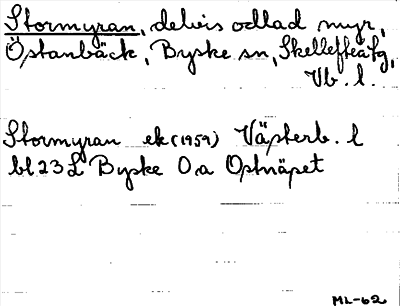 Stormyran, delvis odlad myr,
Östanbäck, Byske sn, Skellefteå fg,
Vb. l.
Stormyran ek (1959) Västerb. l
bl 23 L Byske O:a Ostnäpet
ML-62